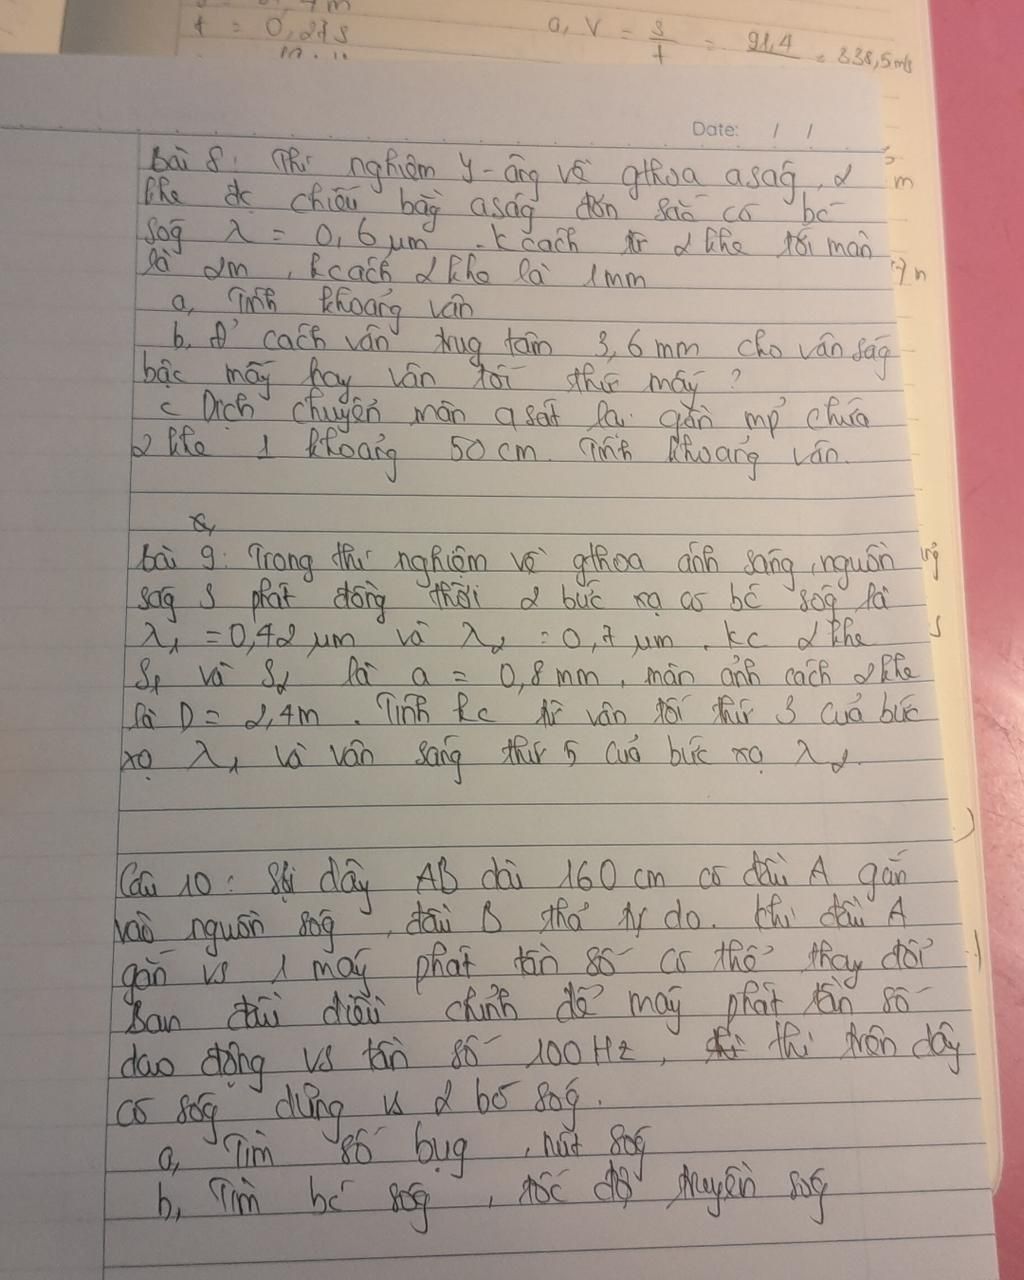 t = 0,27s
a, V = s/t = 91,4 = 338,5 m/s
Date: / /
Bài 8: Thí nghiệm Y-âng về gthoa aság, 2
khe đc chiếu bằg aság đơn sắc có bć
sóg λ = 0,6 μm. k cách từ 2 khe tới màn
là 2m, kcách 2 khe là 1mm
a, Tính khoảng vân
b, Ở cách vân trug tâm 3,6 mm cho vân ság
bậc mấy hay vân tối thứ mấy?
c Dịch chuyển màn qsát lại gần mp chứa
2 khe 1 khoảng 50 cm. Tính khoảng vân.
a,
Bài 9: Trong thí nghiệm về gthoa ánh sáng, nguồn
ság S phát đồng thời 2 bức xạ có bć sóg là
λ1 = 0,42 μm và λ2 = 0,7 μm. kc 2 khe
S1 và S2 là a = 0,8 mm, màn ảnh cách 2 khe
là D = 2,4m. Tính kc từ vân tối thứ 3 của bức
xạ λ1 và vân sáng thứ 5 của bức xạ λ2.
Câu 10: Sợi dây AB dài 160 cm có đầu A gắn
vào nguồn sóg, đầu B thả tự do. Khi đầu A
gắn vs 1 máy phát tần số có thể thay đổi
Ban đầu điều chỉnh để máy phát tần số
dao động vs tần số 100 Hz, thì trên dây
có sóg dừng vs 2 bó sóg.
a, Tìm số bụg, nút sóg
b, Tìm bć sóg, tốc độ truyền sóg